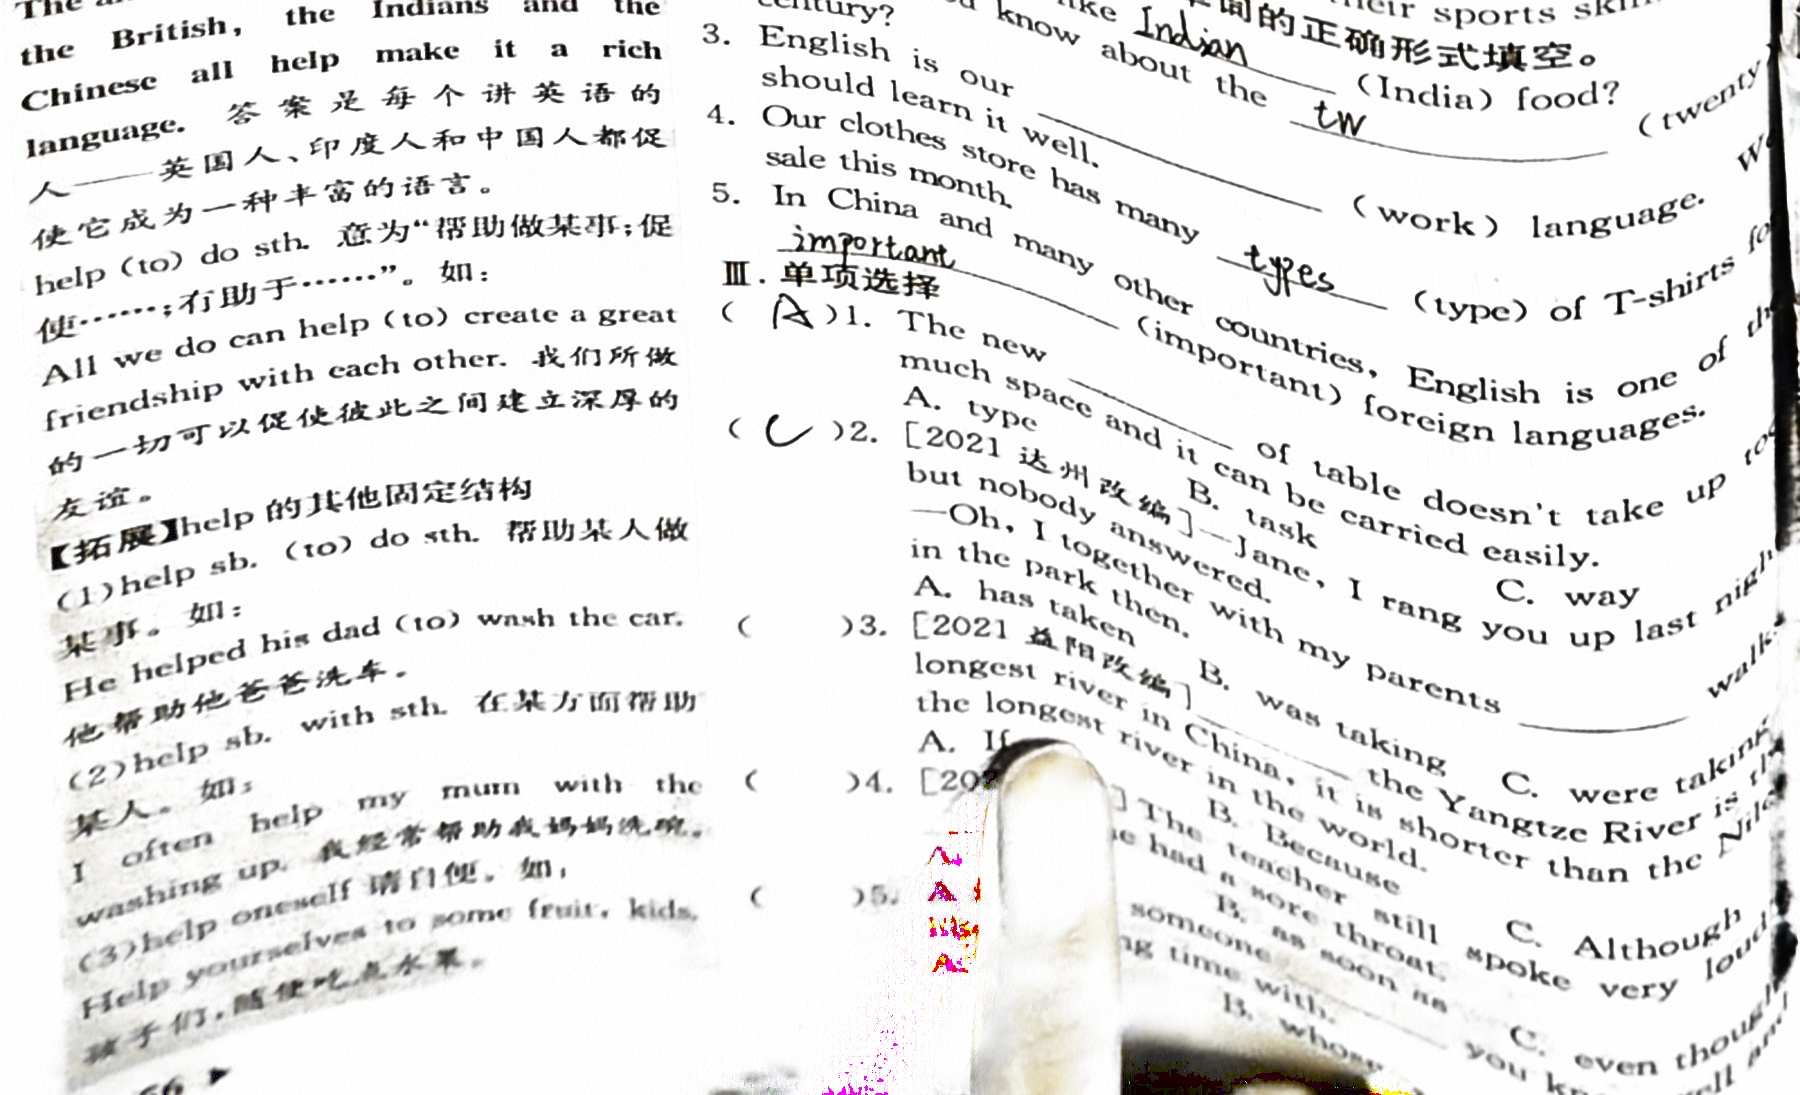 the British, the Indians and the
Chinese all help make it a rich
language. 答案是每个讲英语的
人——英国人、印度人和中国人都促
使它成为一种丰富的语言。
help (to) do sth. 意为“帮助做某事;促
使……;有助于……”。如:
All we do can help (to) create a great
friendship with each other. 我们所做
的一切可以促使彼此之间建立深厚的
友谊。
【拓展】help 的其他固定结构
(1)help sb. (to) do sth. 帮助某人做
某事。如:
He helped his dad (to) wash the car.
他帮助他爸爸洗车。
(2)help sb. with sth. 在某方面帮助
某人。如:
I often help my mum with the
washing up. 我经常帮助我妈妈洗碗。
(3)help oneself 请自便。如:
Help yourselves to some fruit, kids.
孩子们,随便吃点水果。
66
their sports
的正确形式填空。
Indian (India) food?
know about the tw (twenty
century?
3. English is our (work) language. We
should learn it well.
4. Our clothes store has many types (type) of T-shirts for
sale this month.
5. In China and many other countries, English is one of the
important (important) foreign languages.
Ⅲ. 单项选择
( A )1. The new of table doesn't take up too
much space and it can be carried easily.
A. type B. task C. way
( C )2. [2021 达州改编]—Jane, I rang you up last night
but nobody answered.
—Oh, I together with my parents walks
in the park then.
A. has taken B. was taking C. were taking
( )3. [2021 益阳改编] the Yangtze River is the
longest river in China, it is shorter than the Nile
the longest river in the world.
A. If B. Because C. Although
( )4. [202 ] The teacher still spoke very loud
he had a sore throat.
B. as soon as C. even though
( )5. someone you kn
time with.
B. whose